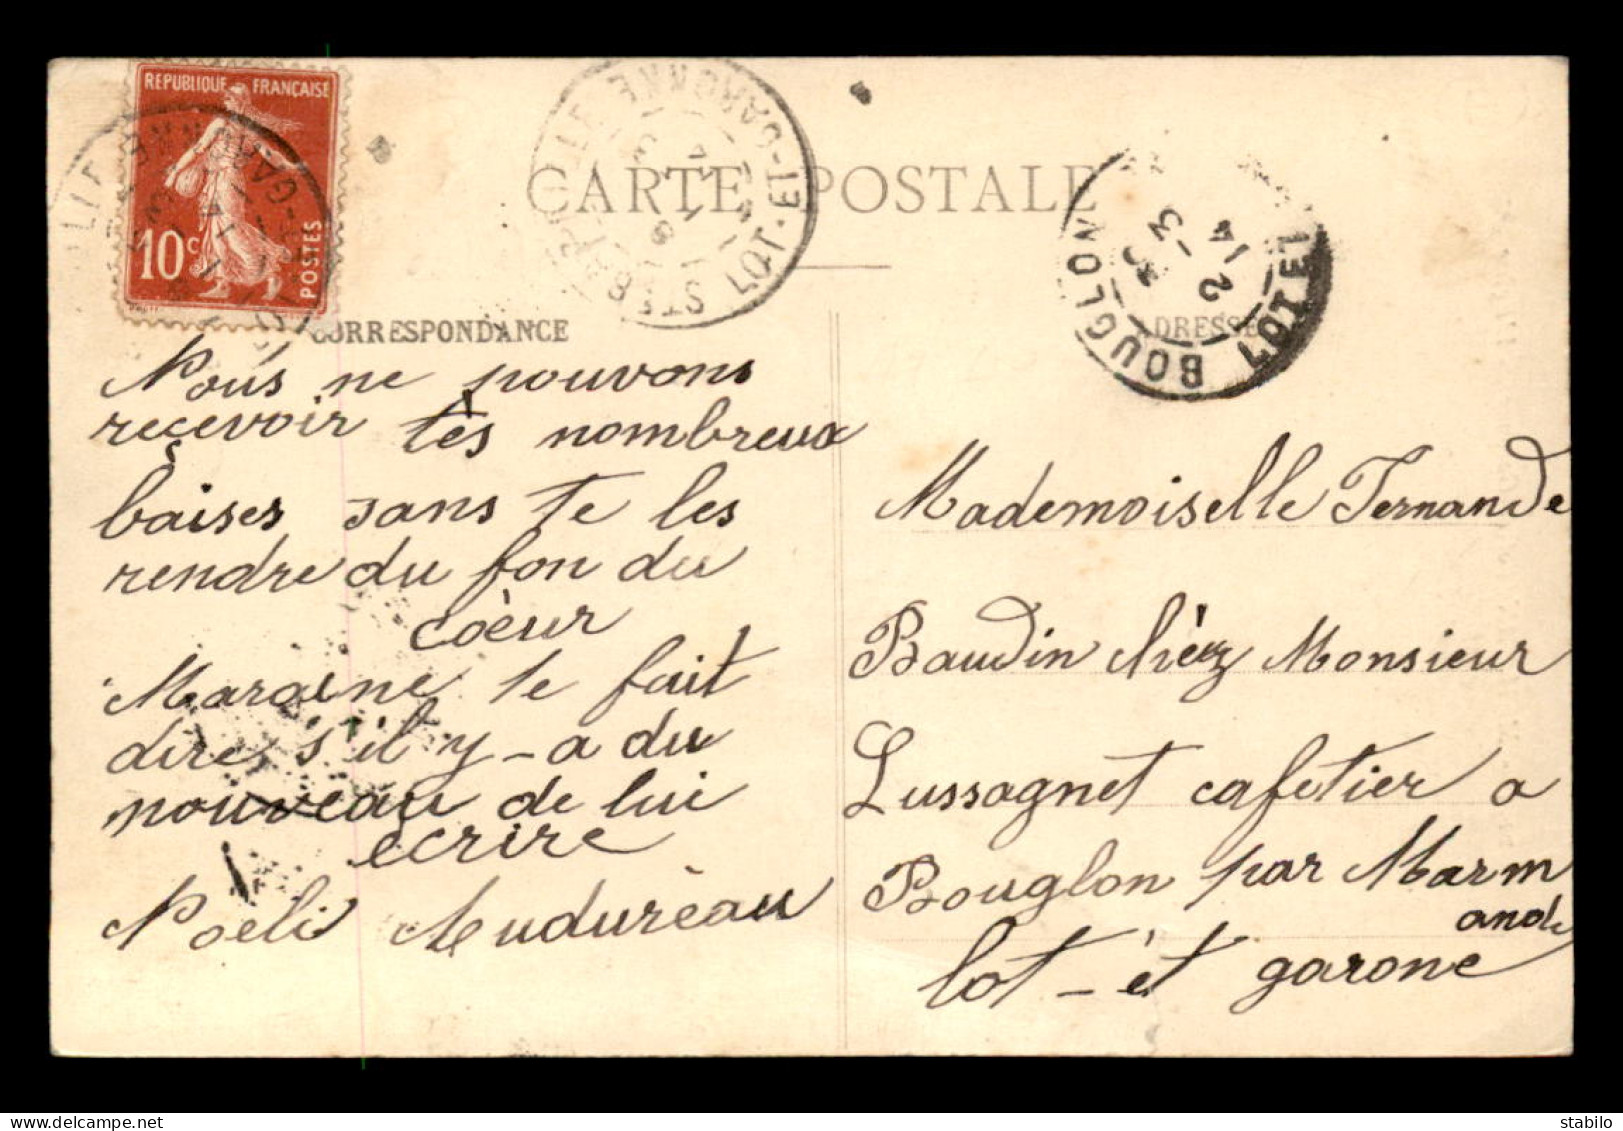 REPUBLIQUE FRANÇAISE
10c
POSTES
CARTE POSTALE
CORRESPONDANCE
ADRESSE
LOT-ET-GARONNE
BOUGLON
LOT ET
2 -3
14
Nous ne pouvons
recevoir tès nombreux
baises sans te les
rendre du fon du
coèur
te fait
dire s'il y-a du
nouveau de lui
ecrire
Noeli
Mademoiselle Fernande
Baudin chèz Monsieur
Lussagnet cafetier a
Bouglon par Marm
ande
lot-èt garone
stabilo
www.delcampe.net